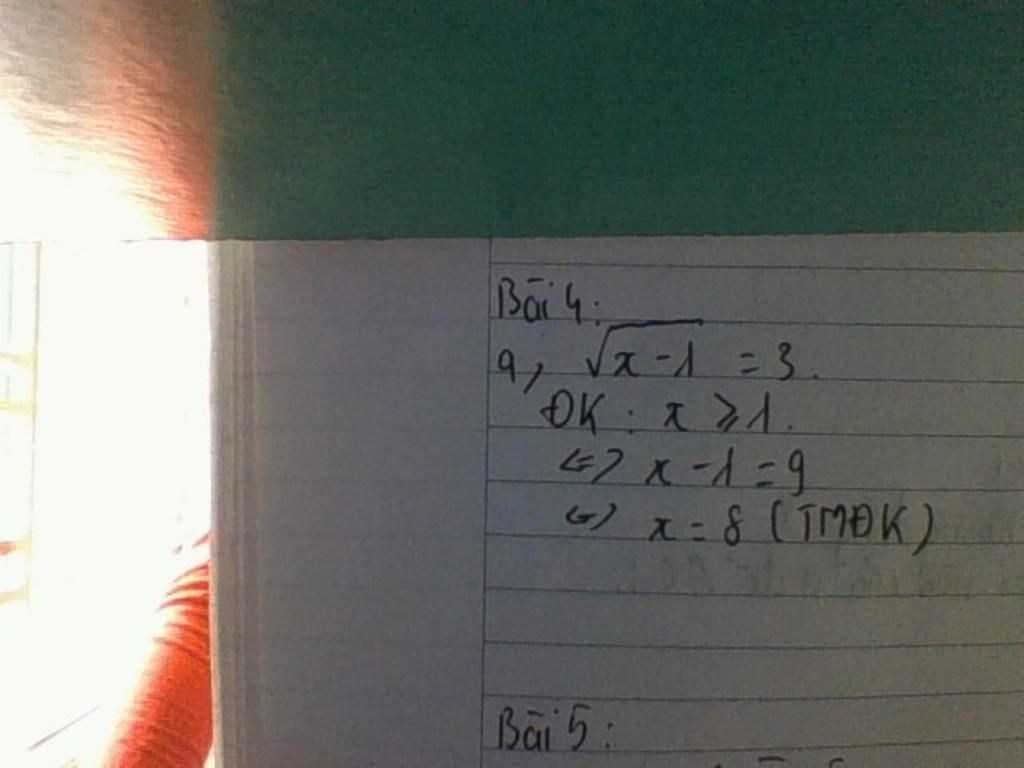 Bài 4:
a, √x-1 = 3.
ĐK: x ≥ 1.
<=> x - 1 = 9
<=> x = 8 (TMĐK)
Bài 5: